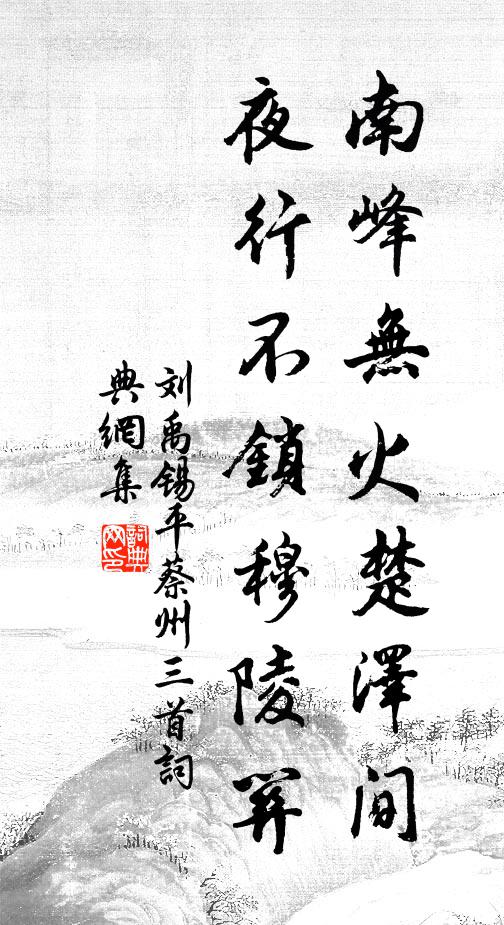 南峰無火楚澤间
夜行不鎖穆陵関
刘禹锡平蔡州三首詞
典網集
詞典网印